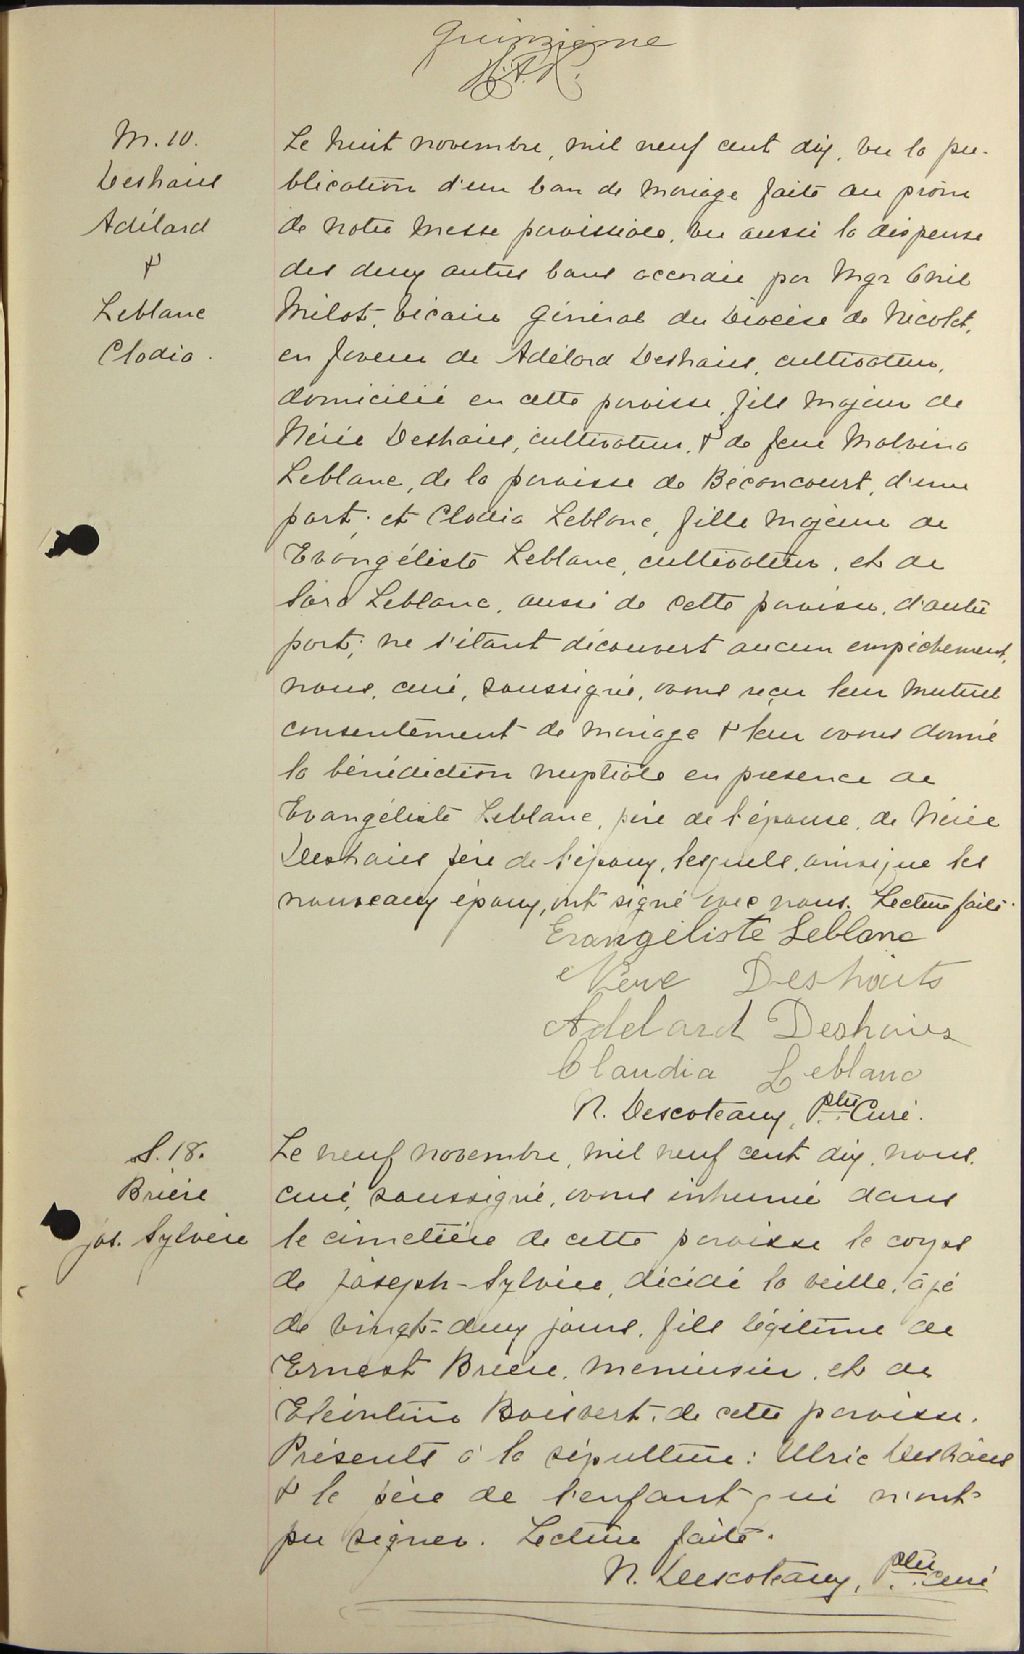 quinzième
M. 10.
Deshaies
Adélard
&
Leblanc
Clodia.
Le huit novembre, mil neuf cent dix, vu la pu-
blication d'un ban de mariage faite au prône
de notre messe paroissiale, vu aussi la dispense
des deux autres bans accordée par Mgr
Milot, Vicaire Général du Diocèse de Nicolet,
en faveur de Adélard Deshaies, cultivateur,
domicilié en cette paroisse, fils majeur de
Nérée Deshaies, cultivateur, & de feue Malvina
Leblanc, de la paroisse de Bécancourt, d'une
part; et Clodia Leblanc, fille majeure de
Evangéliste Leblanc, cultivateur, et de
Sara Leblanc, aussi de cette paroisse, d'autre
part; ne s'étant découvert aucun empêchement,
nous, curé, soussigné, avons reçu leur mutuel
consentement de mariage & leur avons donné
la bénédiction nuptiale en présence de
Evangéliste Leblanc, père de l'épouse, de Nérée
Deshaies père de l'époux, lesquels, ainsi que les
nouveaux époux, ont signé avec nous. Lecture faite.
Evangéliste Leblanc
Deshaits
Adelard Deshaies
Claudia Leblanc
N. Descoteaux, Ptre Curé.
S. 18.
Brière
Jos. Sylvère
Le neuf novembre, mil neuf cent dix, nous,
curé, soussigné, avons inhumé dans
le cimetière de cette paroisse le corps
de Joseph-Sylvère, décédé la veille, âgé
de vingt-deux jours, fils légitime de
Ernest Brière, menuisier, et de
Boisvert, de cette paroisse.
Présents à la sépulture: Ulric Deshaies
& le père de l'enfant qui n'ont
pu signer. Lecture faite.
N. Descoteaux, Ptre Curé